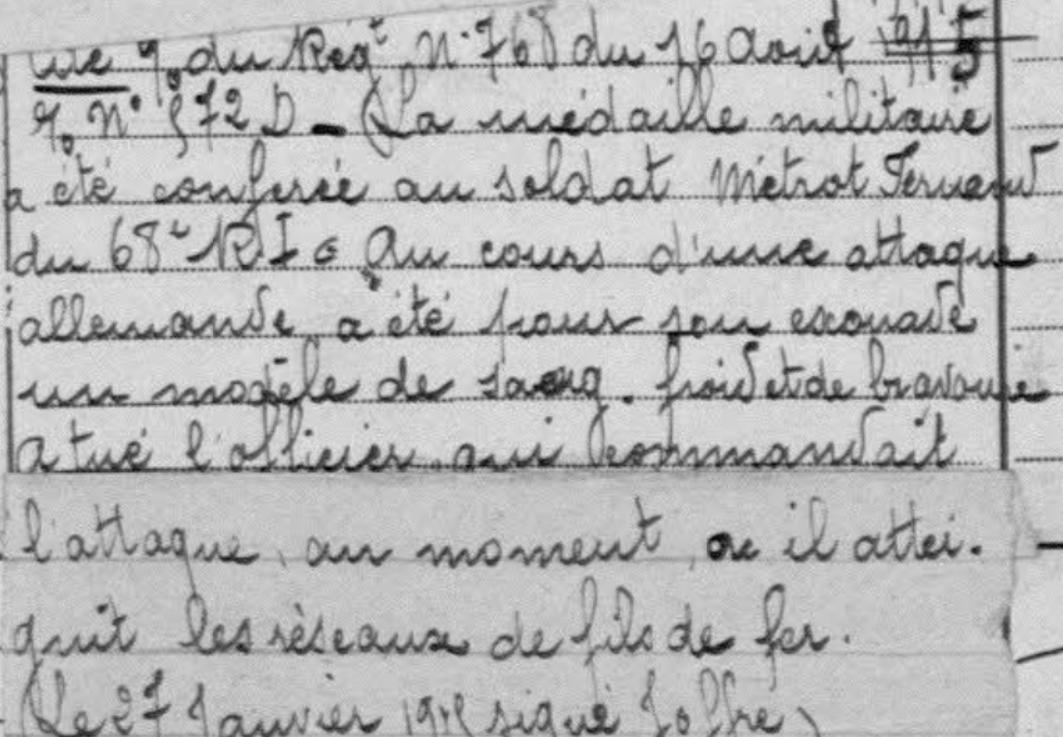 du Regt N° 768 du 16 Août
N° 572 D - La médaille militaire
a été conférée au soldat Métrot Fernand
du 68e R I Au cours d'une attaque
allemande a été pour son escouade
un modèle de sang. froid et de bravoure
a tué l'officier qui commandait
l'attaque, au moment, ou il attei.
gnit les réseaux de fils de fer.
(Le 27 Janvier signé Joffre)